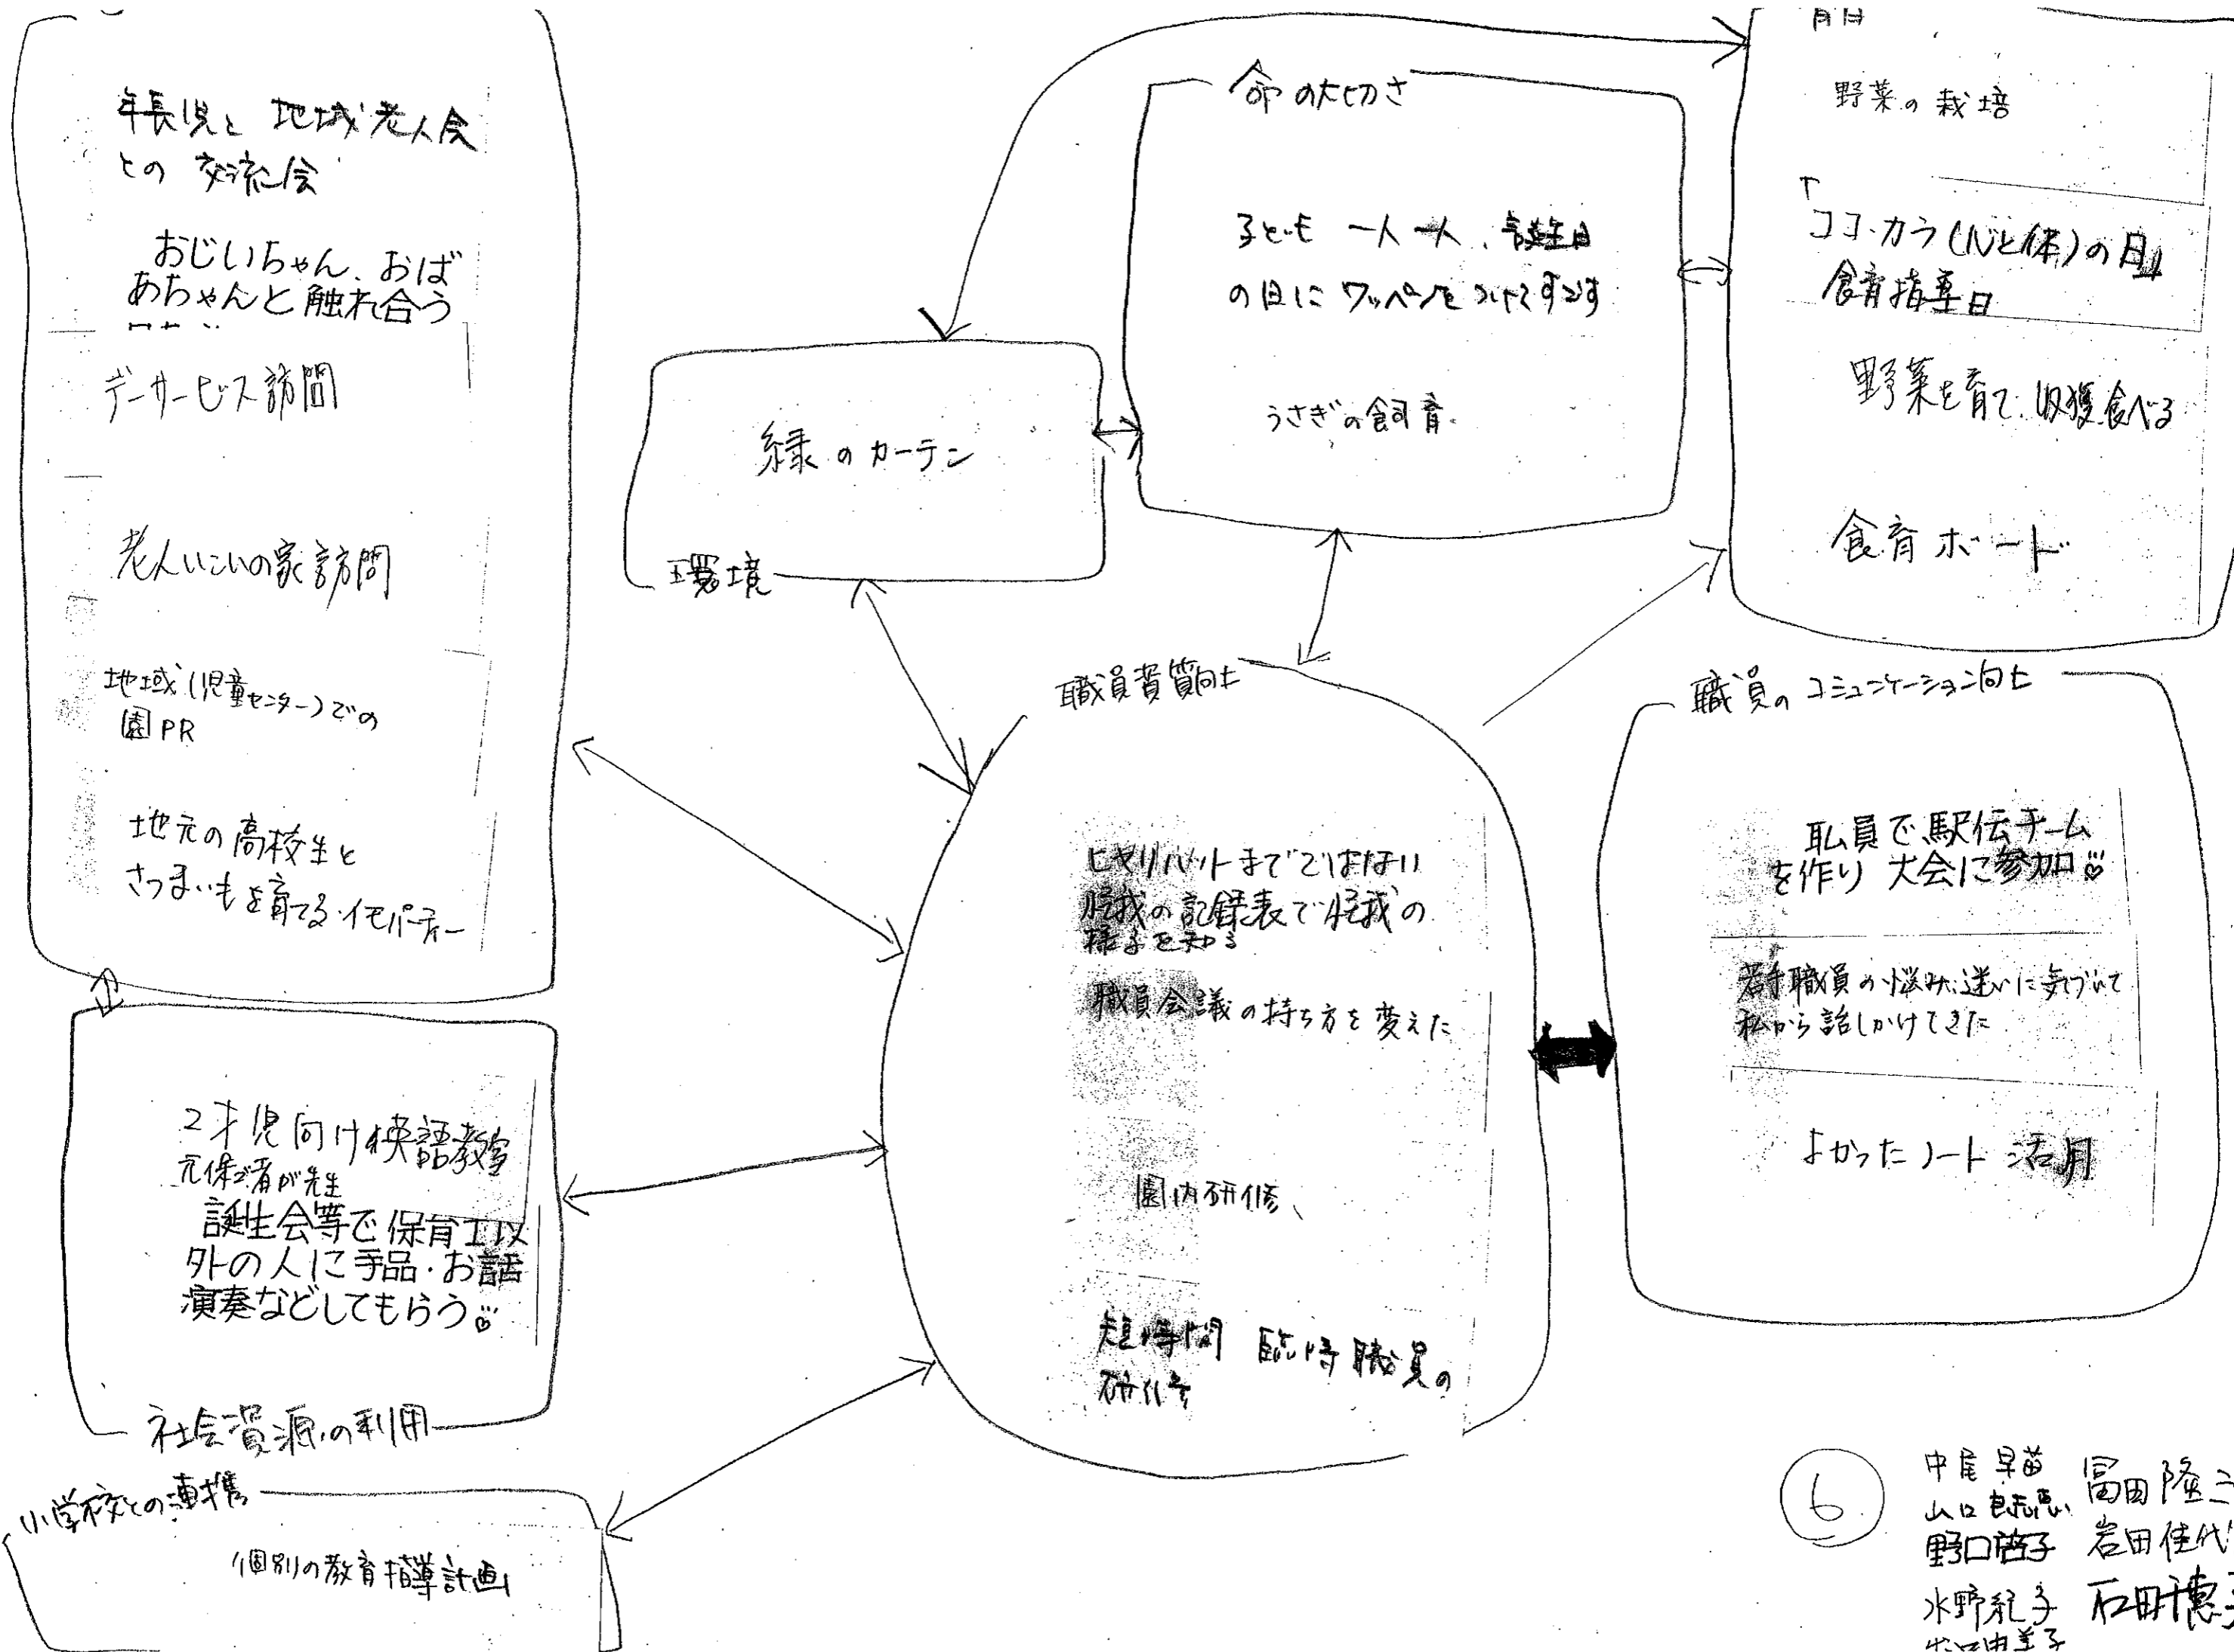 年長児と 地域老人会
との 交流会
おじいちゃん、おば
あちゃんと触れ合う
デーサービス訪問
老人いこいの家訪問
地域(児童センター)での
園PR
地元の高校生と
さつまいもを育てる・イモパーティー
2才児向け英語教室
元保ゴ者が先生
誕生会等で保育士以
外の人に手品・お話
演奏などしてもらう
社会資源の利用
小学校との連携
個別の教育指導計画
緑のカーテン
環境
命の大切さ
子ども 一人一人、誕生日
の日にワッペンをつけてすごす
うさぎの飼育
野菜の栽培
「ココ・カラ(心と体)の日」
食育指導日
野菜を育て 収獲食べる
食育ボード
職員資質向上
ヒヤリハットまでではない
怪我の記録表で怪我の
様子を知る
職員会議の持ち方を変えた
園内研修、
短時間 臨時職員の
研修
職員のコミュニケーション向上
職員で駅伝チーム
を作り 大会に参加
若手職員の悩み、迷いに気づいて
私から話しかけてきた
よかったノート 活用
6
中尾 早苗
山口
野口啓子
水野紀子
冨田 隆
岩田佳代
石田千恵